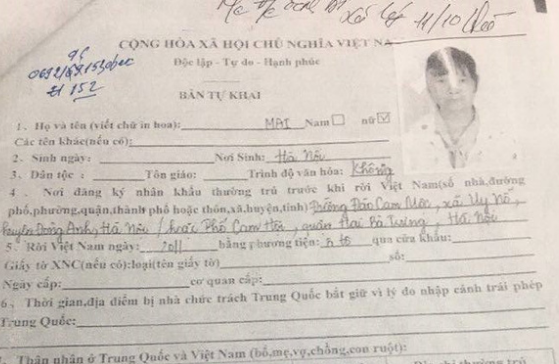 xử lý 11/10
CỘNG HÒA XÃ HỘI CHỦ NGHĨA VIỆT NA
Độc lập - Tự do - Hạnh phúc
152
BẢN TỰ KHAI
1、Họ và tên (viết chữ in hoa): MAI Nam☐ nữ☑
Các tên khác(nếu có):
2、Sinh ngày: Nơi Sinh: Hà Nội
3、Dân tộc : Tôn giáo: Trình độ văn hóa: Không
4 、Nơi đăng ký nhân khẩu thường trú trước khi rời Việt Nam(số nhà,đường
phố,phường,quận,thành phố hoặc thôn,xã,huyện,tỉnh) Đường Đào Cam Mộc, xã Uy Nỗ,
huyện Đông Anh, Hà Nội / hoặc Phố Cam Hội, quận Hai Bà Trưng, Hà Nội
5、Rời Việt Nam ngày: 2011 bằng phương tiện: ô tô qua cửa khẩu:
Giấy tờ XNC(nếu có):loại(tên giấy tờ) số:
Ngày cấp: cơ quan cấp:
6、Thời gian,địa điểm bị nhà chức trách Trung Quốc bắt giữ vì lý do nhập cảnh trái phép
Trung Quốc:
Thân nhân ở Trung Quốc và Việt Nam (bố,mẹ,vợ,chồng,con ruột):